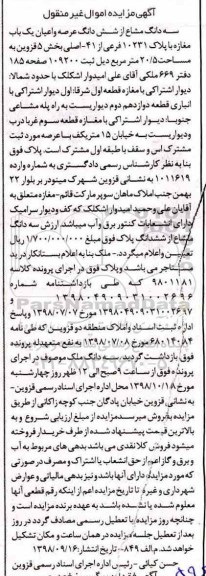 آگهی مزایده اموال غیر منقول
سه دانگ مشاع از شش دانگ عرصه و اعیان یک باب
مغازه با پلاک ۱۰۲۳۱ فرعی از ۴۱-اصلی بخش ۵ قزوین به
مساحت ۲۰/۵ متر مربع ذیل ثبت ۱۰۹۲۰۰ صفحه ۱۸۵
دفتر ۶۶۹ ملکی آقای علی امیدوار اشکلک با حدود شمالا:
دیوار اشتراکی با مغازه قطعه اول شرقا: اول دیوار اشتراکی با
انباری قطعه دوازدهم دوم دیواریست به راه پله مشاعی
جنوبا: دیوار اشتراکی با مغازه قطعه سوم غربا درب
ودیواریست به خیابان ۱۵ متری
مشترک اس و سقف با طبقه اول مشترک است. پلاک فوق
بنا به نظر کارشناس رسمی دادگستری به شماره وارده
۱۰۱۱۶۱۹ به نشانی قزوین شهرک مینودر بر بلوار ۲۲
بهمن جنب املاک ماهان سوپر مارکت قائم- مغازه متعلق به
آقایان علی وحمید امیدوار اشکلک که کف ودیوار سرامیک
دارای انشعابات کنتور برق و آب میباشد ارزش سه دانگ
مشاع از ششدانگ پلاک فوق مبلغ ۱/۷۰۰/۰۰۰/۰۰۰ ریال
تعیین واعلام میگردد- ملک بنا به اعلام بستانکار در ید
مستاجر می باشد وپلاک فوق در اجرای پرونده کلاسه
۹۸۰۱۱۸۱ که طی بازداشتنامه شماره
مورخ ۱۳۹۸/۰۷/۰۷ وپاسخ
اداره ثبت اسناد واملاک منطقه دو قزوین که طی نامه
مورخ ۱۳۹۸/۰۷/۰۸ به نفع متعهدله پرونده
فوق بازداشت گردید- سه دانگ ملک موصوف در اجرای
پرونده فوق از ساعت ۹ صبح الی ۱۲ ظهر روز چهارشنبه
مورخ ۱۳۹۸/۱۰/۱۸ محل اداره اجرای اسناد رسمی قزوین-
به نشانی قزوین خیابان پادگان جنب کوچه زاکانی از طریق
مزایده بفروش میرسد مزایده از مبلغ ارزیابی شروع و به
بالاترین قیمت پیشنهاد شده از طرف خریدار فروخته
میشود فروش کلا نقدی می باشد بدهی های مربوط به آب
و برق و گاز اعم از حق انشعاب یا اشتراک و مصرف در صورتی
که مورد مزایده دارای آنها باشد و نیز بدهی مالیاتی و عوارض
شهرداری و غیره تا تاریخ مزایده اعم از اینکه رقم قطعی آنها
معلوم شده یا نشده باشد به عهده برنده مزایده است و
چنانچه روز مزایده با تعطیل رسمی مصادف گردد در روز
بعد از تعطیل جلسه مزایده در همان ساعت و مکان تشکیل
خواهد شد. م الف ۸۴۹- تاریخ انتشار: ۱۳۹۸/۰۹/۱۶
حسن کیانی - رئیس اداره اجرای اسناد رسمی قزوین